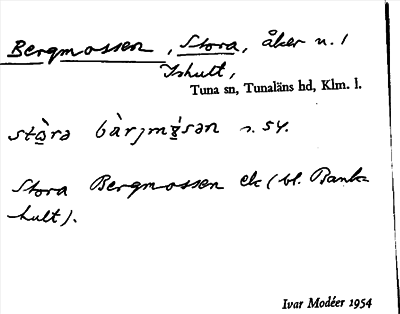 Bergmossen, Stora, åker n. 1
Ishult,
Tuna sn, Tunaläns hd, Klm. l.
stò̱rə bàrjmɤ́sən s. 54.
Stora Bergmossen ek (bl. Bank-
hult).
Ivar Modéer 1954